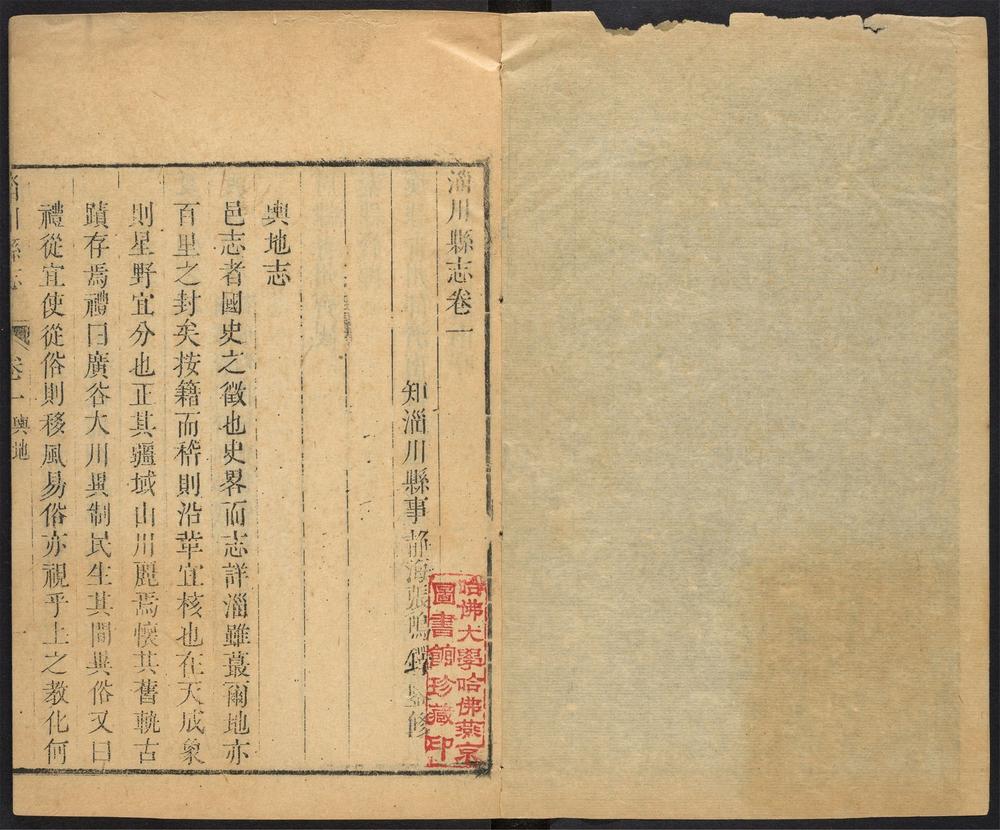 淄川縣志卷一
知淄川縣事静海張鳴鐸鑒修
輿地志
邑志者國史之徵也史畧而志詳淄雖蕞爾地亦
百里之封矣按籍而稽則沿革宜核也在天成象
則星野宜分也正其疆域山川麗焉懷其舊軌古
蹟存焉禮曰廣谷大川異制民生其間異俗又曰
禮從宜使從俗則移風易俗亦視乎上之教化何
淄川縣志
卷一 輿地
哈佛大學哈佛燕京
圖書館珍藏印